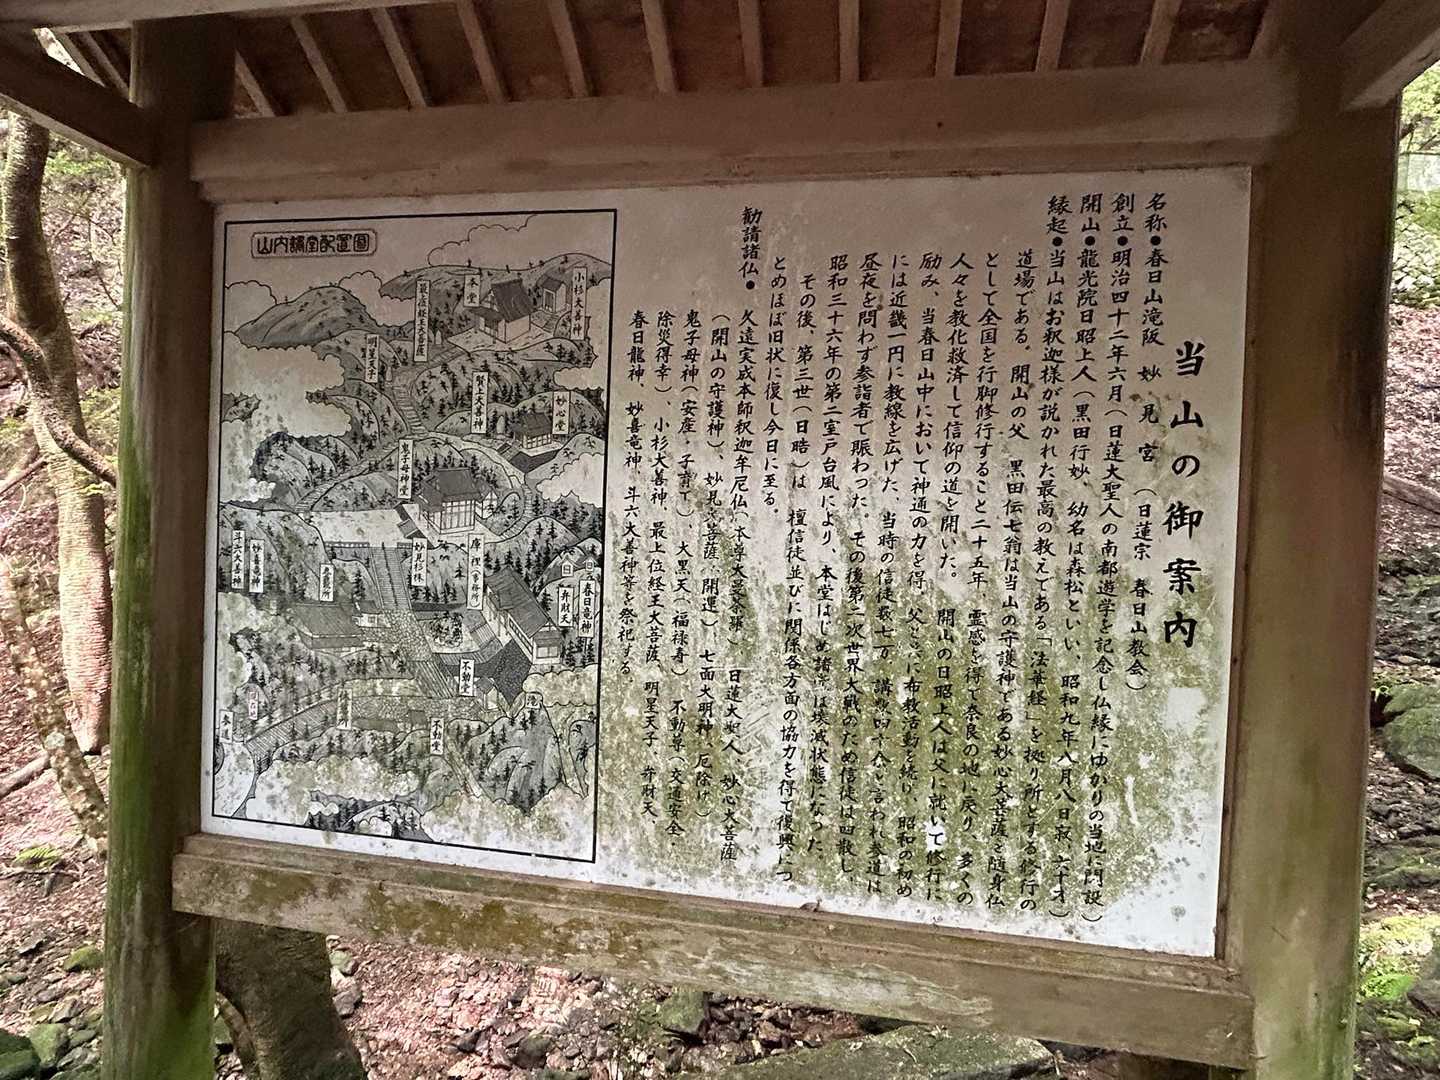 当山の御案内
名称●春日山滝阪 妙見宮 (日蓮宗 春日山教会)
創立●明治四十二年六月(日蓮大聖人の南都遊学を記念し仏縁にゆかりの当地に開設)
開山●龍光院日昭上人(黒田行妙、幼名は森松といい、昭和九年八月八日寂、六十才)
縁起●当山はお釈迦様が説かれた最高の教えである「法華経」を拠り所とする修行の
道場である。開山の父 黒田伝七翁は当山の守護神である妙心大菩薩を随身仏
として全国を行脚修行すること二十五年、霊感を得て奈良の地に戻り、多くの
人々を教化救済して信仰の道を開いた。 開山の日昭上人は父に就いて修行に
励み、当春日山中において神通の力を得、父と共に布教活動を続け、昭和の初め
には近畿一円に教線を広げた、当時の信徒数七万、講数四十八と言われ参道は
昼夜を問わず参詣者で賑わった。その後第二次世界大戦のため信徒は四散し、
昭和三十六年の第二室戸台風により、本堂はじめ諸堂は壊滅状態になった。
その後、第三世(日晧)は、檀信徒並びに関係各方面の協力を得て復興につ
とめほぼ旧状に復し今日に至る。
勧請諸仏●
久遠実成本師釈迦牟尼仏(本尊大曼荼羅) 日蓮大聖人、妙心大菩薩
(開山の守護神)、妙見大菩薩(開運)、七面大明神(厄除け)
鬼子母神(安産・子育て)、大黒天(福禄寿) 不動尊(交通安全・
除災得幸)、小杉大善神、最上位経王大菩薩、明星天子、弁財天、
春日龍神、妙喜竜神、斗六大善神等を祭祀する。
山内諸堂配置図
小杉大善神
本堂
最上位経王大菩薩
明星天子
賢上大善神
妙心堂
鬼子母神堂
庫裡(事務所)
妙見杉株
春日竜神
弁財天
妙喜竜神
斗六大善神
不動堂
滝
不動堂
参道